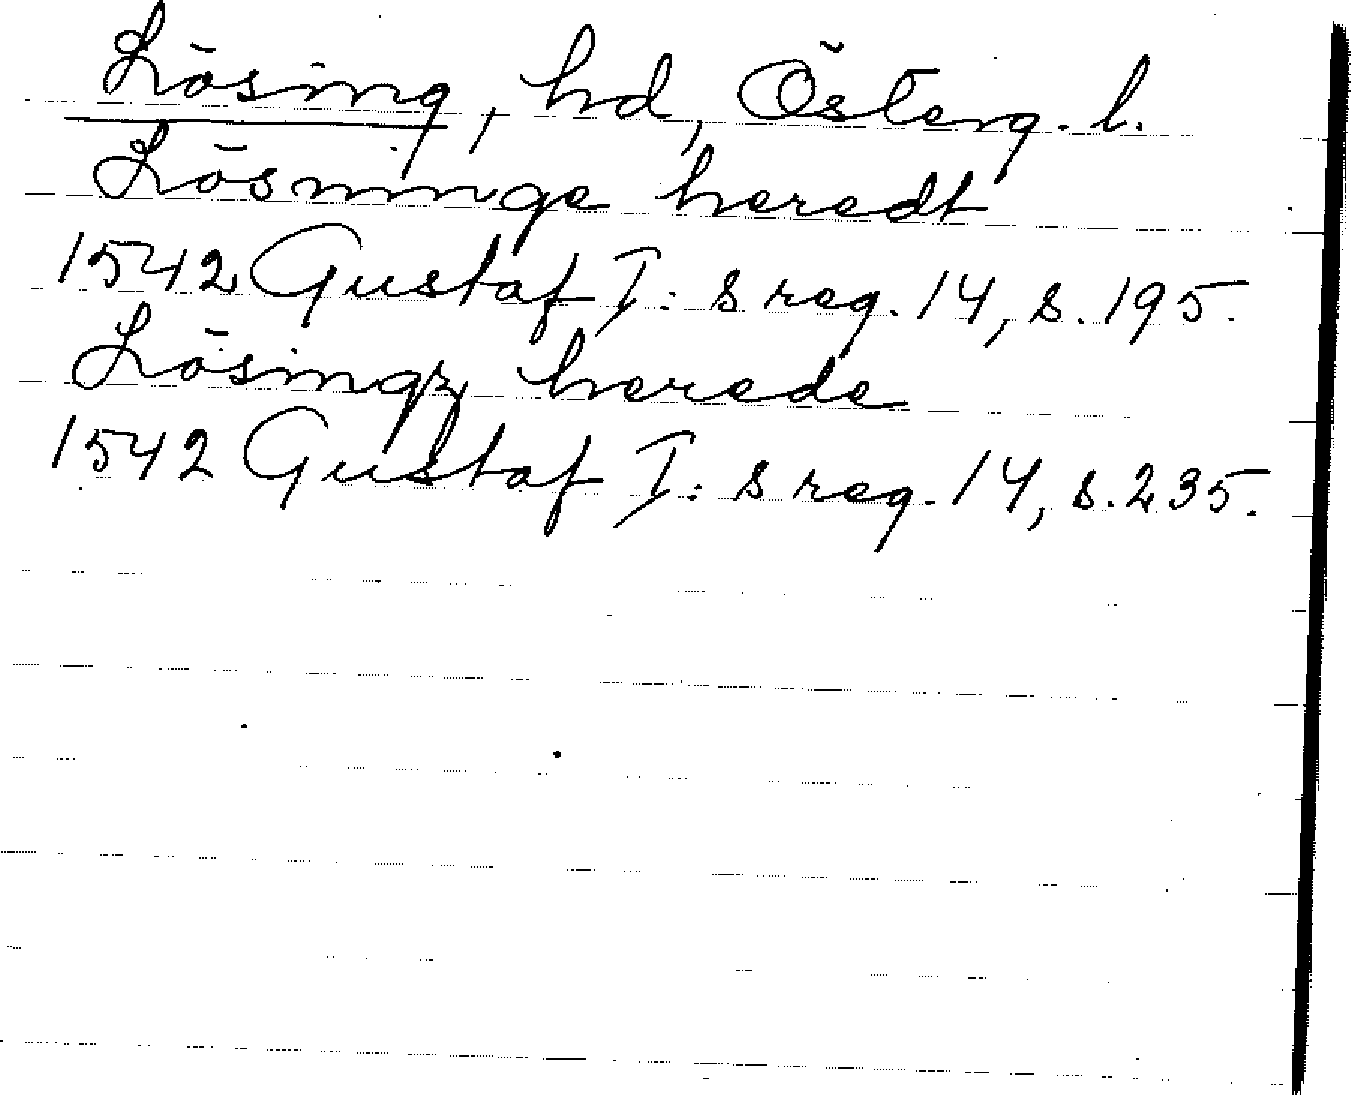 Lösing, hd, Österg. l.
Lösninge heredt
1542 Gustaf I: s reg. 14, s. 195.
Lösingz herede
1542 Gustaf I: s reg. 14, s. 235.